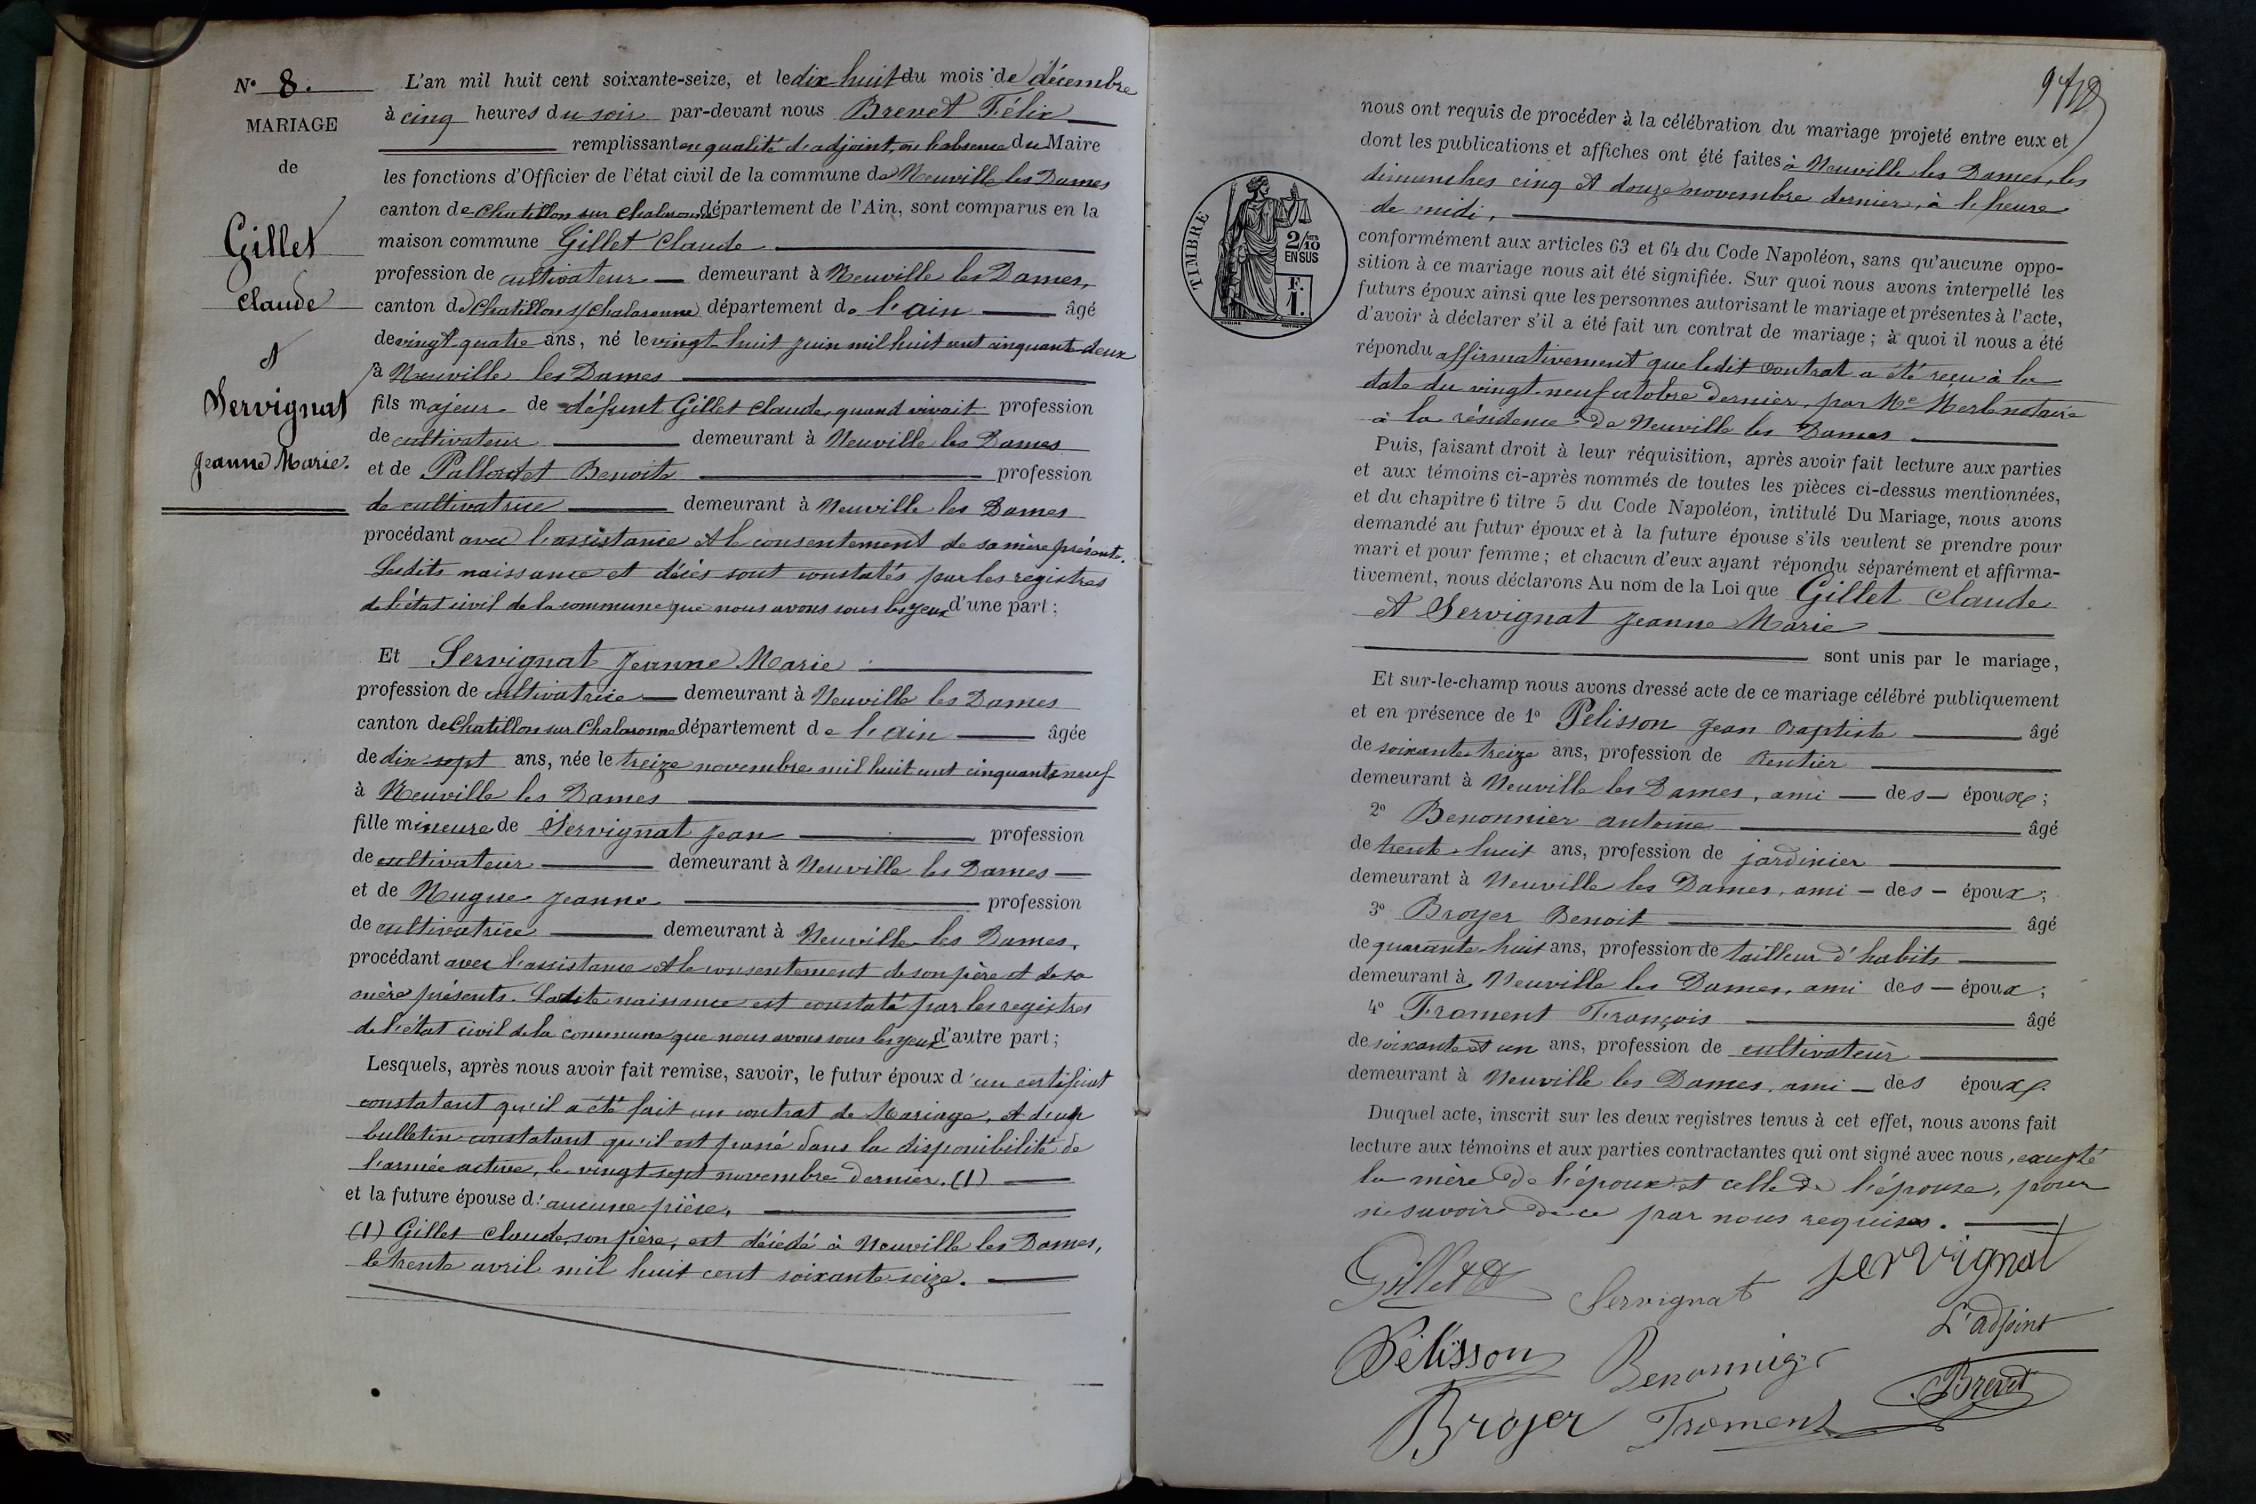 N° 8.
MARIAGE
de
Gillet
Claude
et
Servignat
Jeanne Marie.
L'an mil huit cent soixante-seize, et le dix huit du mois de décembre
à cinq heures du soir par-devant nous Brevet Félix
remplissant en qualité d'adjoint, en l'absence du Maire
les fonctions d'Officier de l'état civil de la commune de Neuville les Dames
canton de Chatillon sur Chalaronne département de l'Ain, sont comparus en la
maison commune Gillet Claude
profession de cultivateur demeurant à Neuville les Dames,
canton de Chatillon s/ Chalaronne département de l'ain âgé
de vingt quatre ans, né le vingt huit juin mil huit cent cinquante deux
à Neuville les Dames
fils majeur de défunt Gillet Claude, quand vivait profession
de cultivateur demeurant à Neuville les Dames
et de Benoite profession
de cultivatrice demeurant à Neuville les Dames
procédant avec l'assistance et le consentement de sa mère présente.
Lesdits naissance et décès sont constatés par les registres
de l'état civil de la commune que nous avons sous les yeux d'une part ;
Et Servignat Jeanne Marie
profession de cultivatrice demeurant à Neuville les Dames
canton de Chatillon sur Chalaronne département de l'ain âgée
de dix sept ans, née le treize novembre mil huit cent cinquante neuf
à Neuville les Dames
fille mineure de Servignat Jean profession
de cultivateur demeurant à Neuville les Dames
et de Nugue Jeanne profession
de cultivatrice demeurant à Neuville les Dames,
procédant avec l'assistance et le consentement de son père et de sa
mère présents. Ladite naissance est constaté par les registres
de l'état civil de la commune que nous avons sous les yeux d'autre part ;
Lesquels, après nous avoir fait remise, savoir, le futur époux d'un certificat
constatant qu'il a été fait un contrat de Mariage, et d'un
bulletin constatant qu'il est passé dans la disponibilité de
l'armée active, le vingt sept novembre dernier. (1)
et la future épouse d'aucune pièce,
(1) Gillet Claude, son père, est décédé à Neuville les Dames,
le trente avril mil huit cent soixante seize.
nous ont requis de procéder à la célébration du mariage projeté entre eux et
dont les publications et affiches ont été faites à Neuville les Dames, les
dimanches cinq et douze novembre dernier, à l'heure
de midi,
TIMBRE
2/10
EN SUS
F.
1.
conformément aux articles 63 et 64 du Code Napoléon, sans qu'aucune oppo-
sition à ce mariage nous ait été signifiée. Sur quoi nous avons interpellé les
futurs époux ainsi que les personnes autorisant le mariage et présentes à l'acte,
d'avoir à déclarer s'il a été fait un contrat de mariage ; à quoi il nous a été
répondu affirmativement que ledit contrat a été reçu à la
date du vingt-neuf octobre dernier, par Me Merle notaire
à la résidence de Neuville les Dames
Puis, faisant droit à leur réquisition, après avoir fait lecture aux parties
et aux témoins ci-après nommés de toutes les pièces ci-dessus mentionnées,
et du chapitre 6 titre 5 du Code Napoléon, intitulé Du Mariage, nous avons
demandé au futur époux et à la future épouse s'ils veulent se prendre pour
mari et pour femme ; et chacun d'eux ayant répondu séparément et affirma-
tivement, nous déclarons Au nom de la Loi que Gillet Claude
et Servignat Jeanne Marie
sont unis par le mariage,
Et sur-le-champ nous avons dressé acte de ce mariage célébré publiquement
et en présence de 1° Pelisson Jean Baptiste âgé
de soixante treize ans, profession de Rentier
demeurant à Neuville les Dames, ami des époux ;
2° Benonnier antoine âgé
de trente-huit ans, profession de jardinier
demeurant à Neuville les Dames, ami des époux ;
3° Broyer Benoit âgé
de quarante-huit ans, profession de tailleur d'habits
demeurant à Neuville les Dames, ami des époux ;
4° Froment François âgé
de soixante et un ans, profession de cultivateur
demeurant à Neuville les Dames, ami des époux.
Duquel acte, inscrit sur les deux registres tenus à cet effet, nous avons fait
lecture aux témoins et aux parties contractantes qui ont signé avec nous, excepté
la mère de l'époux et celle de l'épouse, pour
ne savoir de ce par nous requises.
Gillet Servignat servignat
L'adjoint
Pélisson Benonnier Brevet
Broyer Froment